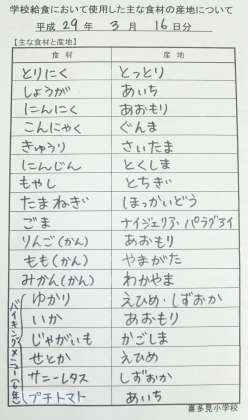 学校給食において使用した主な食材の産地について
平成 29 年 3 月 16 日分
【主な食材と産地】
食材 産地
とりにく とっとり
しょうが あいち
にんにく あおもり
こんにゃく ぐんま
きゅうり さいたま
にんじん とくしま
もやし とちぎ
たまねぎ ほっかいどう
ごま ナイジェリア・パラグアイ
りんご(かん) あおもり
もも(かん) やまがた
みかん(かん) わかやま
バイキングメニュー(6年)
ゆかり えひめ・しずおか
いか あおもり
じゃがいも かごしま
せとか えひめ
サニーレタス しずおか
プチトマト あいち
喜多見小学校